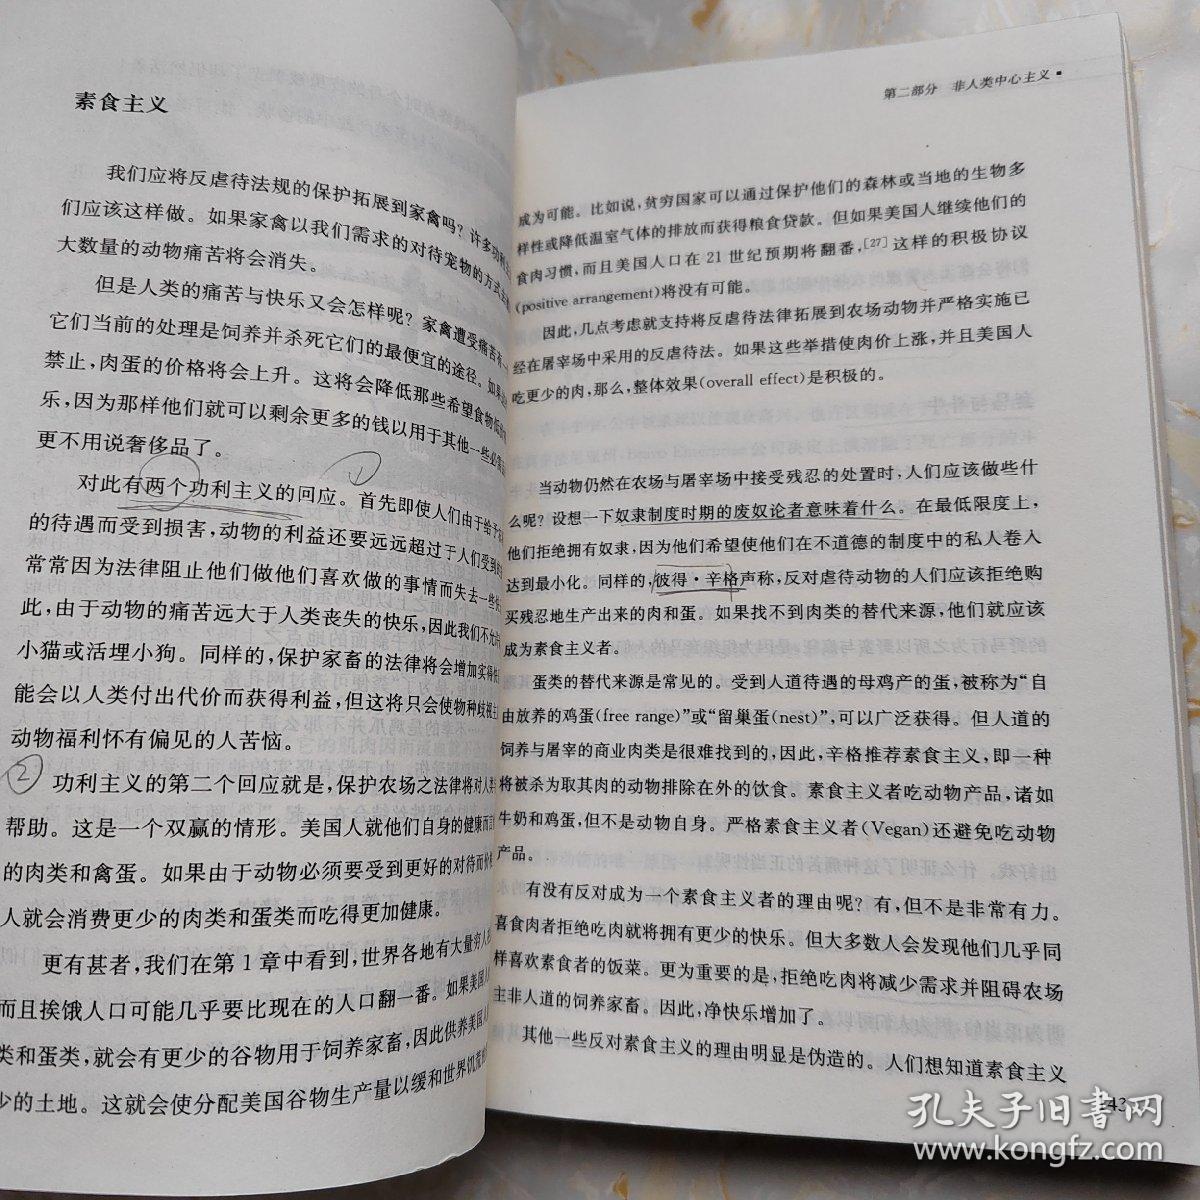 素食主义
我们应将反虐待法规的保护拓展到家禽吗？许多功利主
们应该这样做。如果家禽以我们需求的对待宠物的方式
大数量的动物痛苦将会消失。
但是人类的痛苦与快乐又会怎样呢？家禽遭受痛苦
它们当前的处理是饲养并杀死它们的最便宜的途径。如果
禁止，肉蛋的价格将会上升。这将会降低那些希望食物低
乐，因为那样他们就可以剩余更多的钱以用于其他一些必需
更不用说奢侈品了。
①
对此有两个功利主义的回应。首先即使人们由于给予
的待遇而受到损害，动物的利益还要远远超过于人们受到的
常常因为法律阻止他们做他们喜欢做的事情而失去一些
此，由于动物的痛苦远大于人类丧失的快乐，因此我们不允许
小猫或活埋小狗。同样的，保护家畜的法律将会增加实得
能会以人类付出代价而获得利益，但这将只会使物种歧视主
动物福利怀有偏见的人苦恼。
②
功利主义的第二个回应就是，保护农场之法律将对人类
帮助。这是一个双赢的情形。美国人就他们自身的健康而言
的肉类和禽蛋。如果由于动物必须要受到更好的对待而价
人就会消费更少的肉类和蛋类而吃得更加健康。
更有甚者，我们在第1章中看到，世界各地有大量穷人
而且挨饿人口可能几乎要比现在的人口翻一番。如果美国人
类和蛋类，就会有更少的谷物用于饲养家畜，因此供养美国人
少的土地。这就会使分配美国谷物生产量以缓和世界饥荒
第二部分 非人类中心主义
成为可能。比如说，贫穷国家可以通过保护他们的森林或当地的生物多
样性或降低温室气体的排放而获得粮食贷款。但如果美国人继续他们的
食肉习惯，而且美国人口在21世纪预期将翻番，[27]这样的积极协议
(positive arrangement)将没有可能。
因此，几点考虑就支持将反虐待法律拓展到农场动物并严格实施已
经在屠宰场中采用的反虐待法。如果这些举措使肉价上涨，并且美国人
吃更少的肉，那么，整体效果(overall effect)是积极的。
当动物仍然在农场与屠宰场中接受残忍的处置时，人们应该做些什
么呢？设想一下奴隶制度时期的废奴论者意味着什么。在最低限度上，
他们拒绝拥有奴隶，因为他们希望使他们在不道德的制度中的私人卷入
达到最小化。同样的，彼得·辛格声称，反对虐待动物的人们应该拒绝购
买残忍地生产出来的肉和蛋。如果找不到肉类的替代来源，他们就应该
成为素食主义者。
蛋类的替代来源是常见的。受到人道待遇的母鸡产的蛋，被称为“自
由放养的鸡蛋(free range)”或“留巢蛋(nest)”，可以广泛获得。但人道的
饲养与屠宰的商业肉类是很难找到的，因此，辛格推荐素食主义，即一种
将被杀为取其肉的动物排除在外的饮食。素食主义者吃动物产品，诸如
牛奶和鸡蛋，但不是动物自身。严格素食主义者(Vegan)还避免吃动物
产品。
有没有反对成为一个素食主义者的理由呢？有，但不是非常有力。
喜食肉者拒绝吃肉就将拥有更少的快乐。但大多数人会发现他们几乎同
样喜欢素食者的饭菜。更为重要的是，拒绝吃肉将减少需求并阻碍农场
主非人道的饲养家畜。因此，净快乐增加了。
其他一些反对素食主义的理由明显是伪造的。人们想知道素食主义
43
孔夫子旧书网
www.kongfz.com